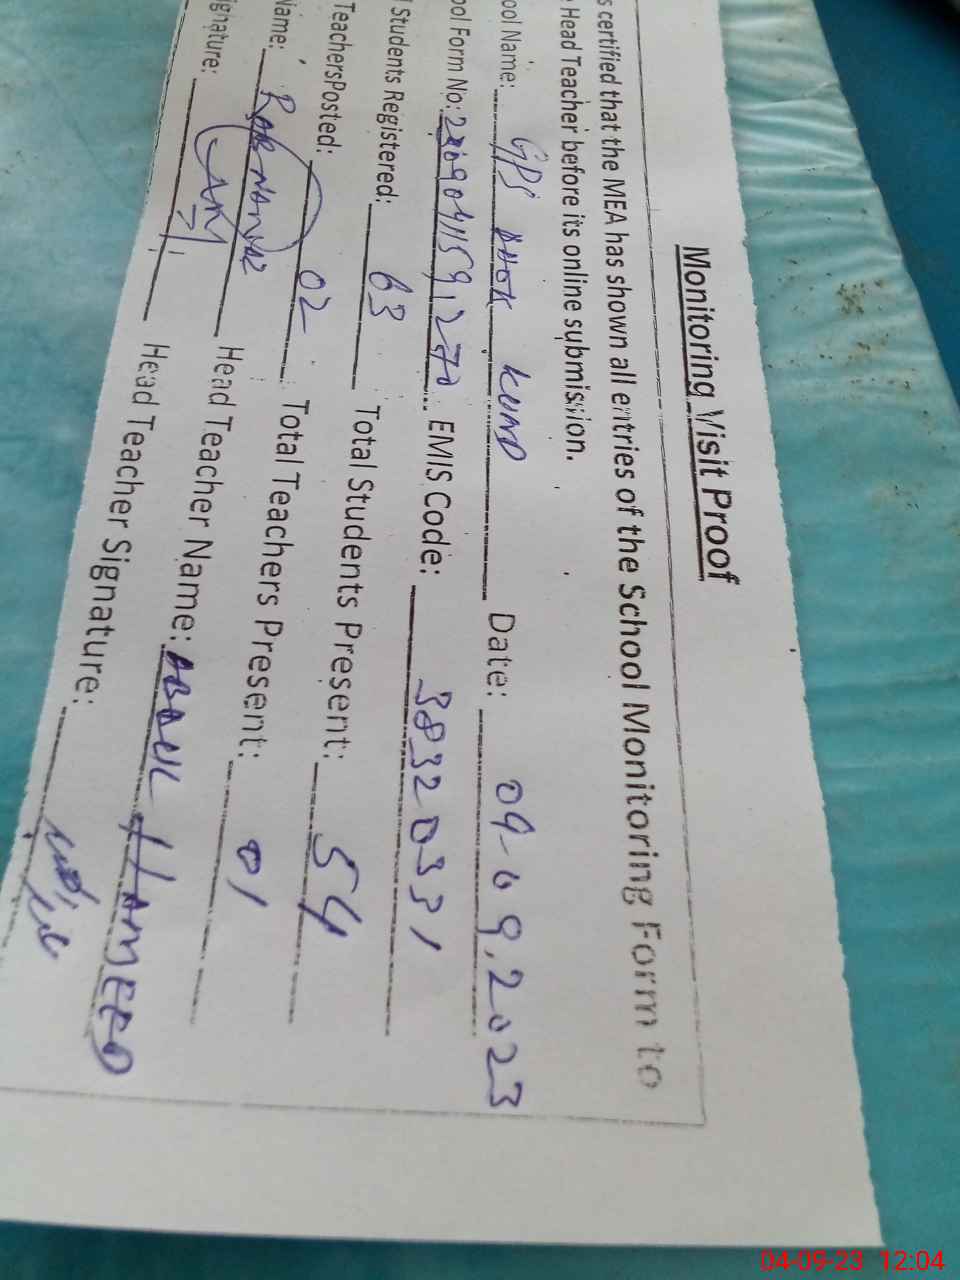 Monitoring Visit Proof
s certified that the MEA has shown all entries of the School Monitoring Form to
Head Teacher before its online submission.
ool Name: GPS DHOK KUND Date: 04-09,2023
ool Form No: EMIS Code: 38320331
l Students Registered: 63 Total Students Present: 54
TeachersPosted: 02 Total Teachers Present: 01
Name: Head Teacher Name: ABDUL HAMEED
ignature: Head Teacher Signature:
04-09-23 12:04